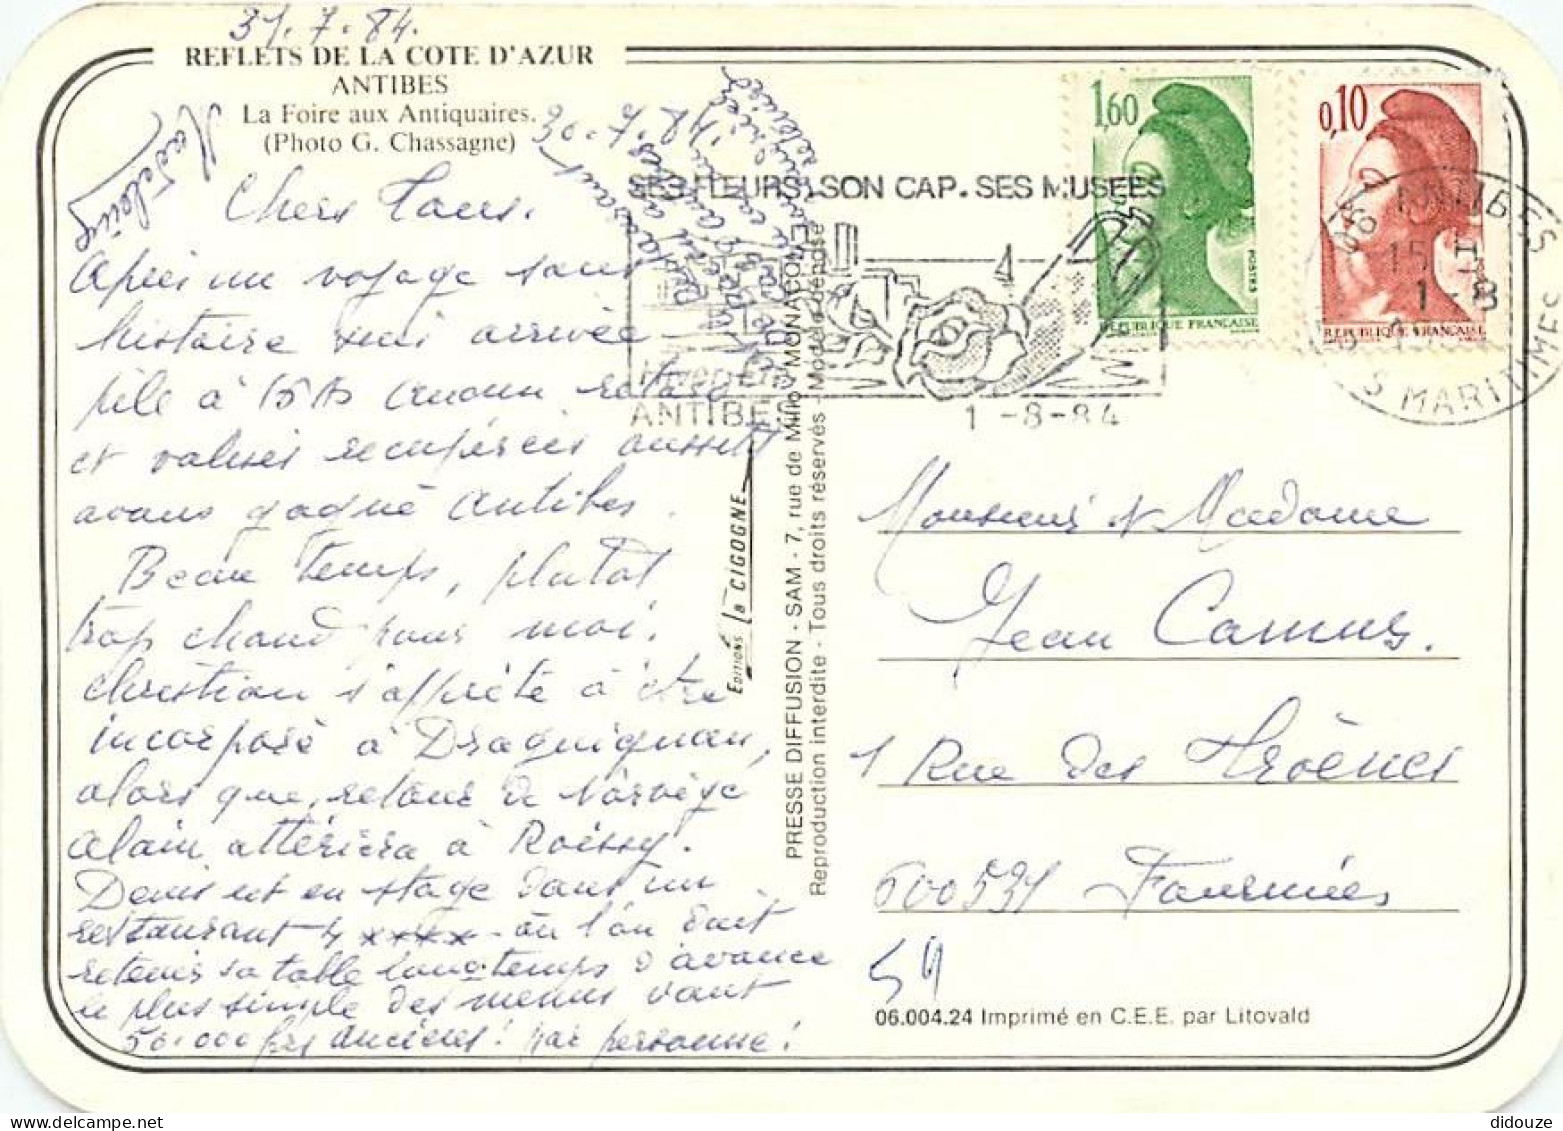 31.7.84.
REFLETS DE LA COTE D'AZUR
ANTIBES
La Foire aux Antiquaires.
(Photo G. Chassagne)
30.7.84
Chers Tous.
Après un voyage sans
histoire suis arrivée
pile à 15 h
et valises récupérées aussitôt
avons gagné Antibes.
Beau temps, plutôt
trop chaud pour moi.
Christian s'apprête à être
incorporé à Draguignan,
alors que, retour de Norvège
Alain attérira à Roissy.
Denis est en stage dans un
restaurant 4 xxxx où l'on doit
retenir sa table longtemps d'avance
le plus simple des menus vaut
50.000 frs anciens! par personne!
SES FLEURS SON CAP. SES MUSEES
ANTIBES
1-8-84
1,60
POSTES
REPUBLIQUE FRANÇAISE
0,10
REPUBLIQUE FRANÇAISE
06 ANTIBES
15 H
1-8
MARITIMES
EDITIONS la CIGOGNE
PRESSE DIFFUSION - SAM - 7, rue de Millo - MONACO
Reproduction interdite - Tous droits réservés - Modèle déposé
Monsieur & Madame
Jean Camus.
1 Rue des Troènes
600531 Fourmies
59
06.004.24 Imprimé en C.E.E. par Litovald
didouze